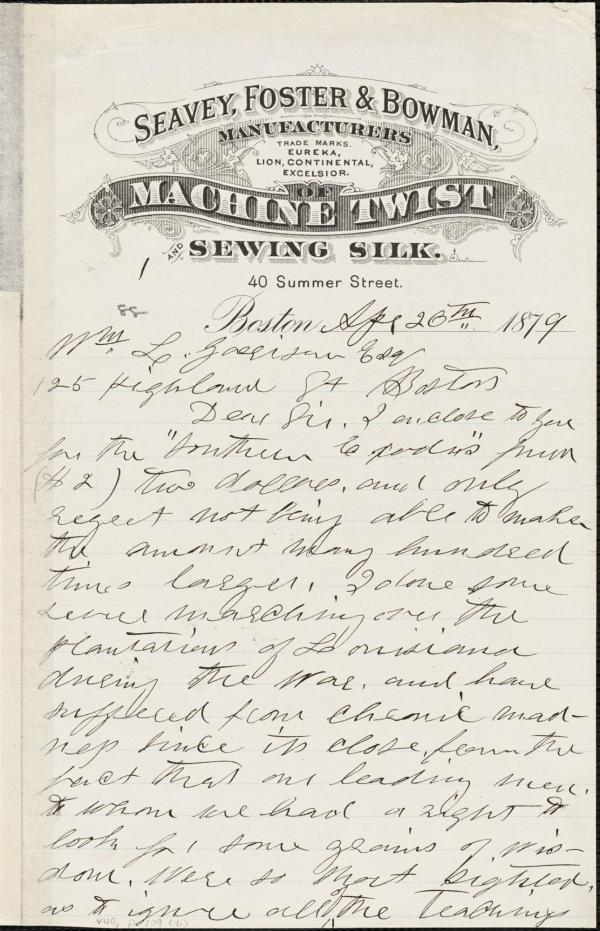 SEAVEY, FOSTER & BOWMAN,
MANUFACTURERS
TRADE MARKS.
EUREKA,
LION, CONTINENTAL,
EXCELSIOR.
OF
MACHINE TWIST
AND SEWING SILK.
40 Summer Street.
1
Boston Apl 26th 1879
Wm. L. Garrison Esq
125 Highland St Boston
Dear Sir. I enclose to you
for the "Southern Exodus" fund
($2) two dollars, and only
regret not being able to make
the amount many hundred
times larger. I done some
severe marching over the
plantations of Louisiana
during the war, and have
suffered from chronic mad-
ness since its close, from the
fact that our leading men,
to whom we had a right to
look for some grains of wis-
dom, were so short sighted,
as to ignore all the teachings